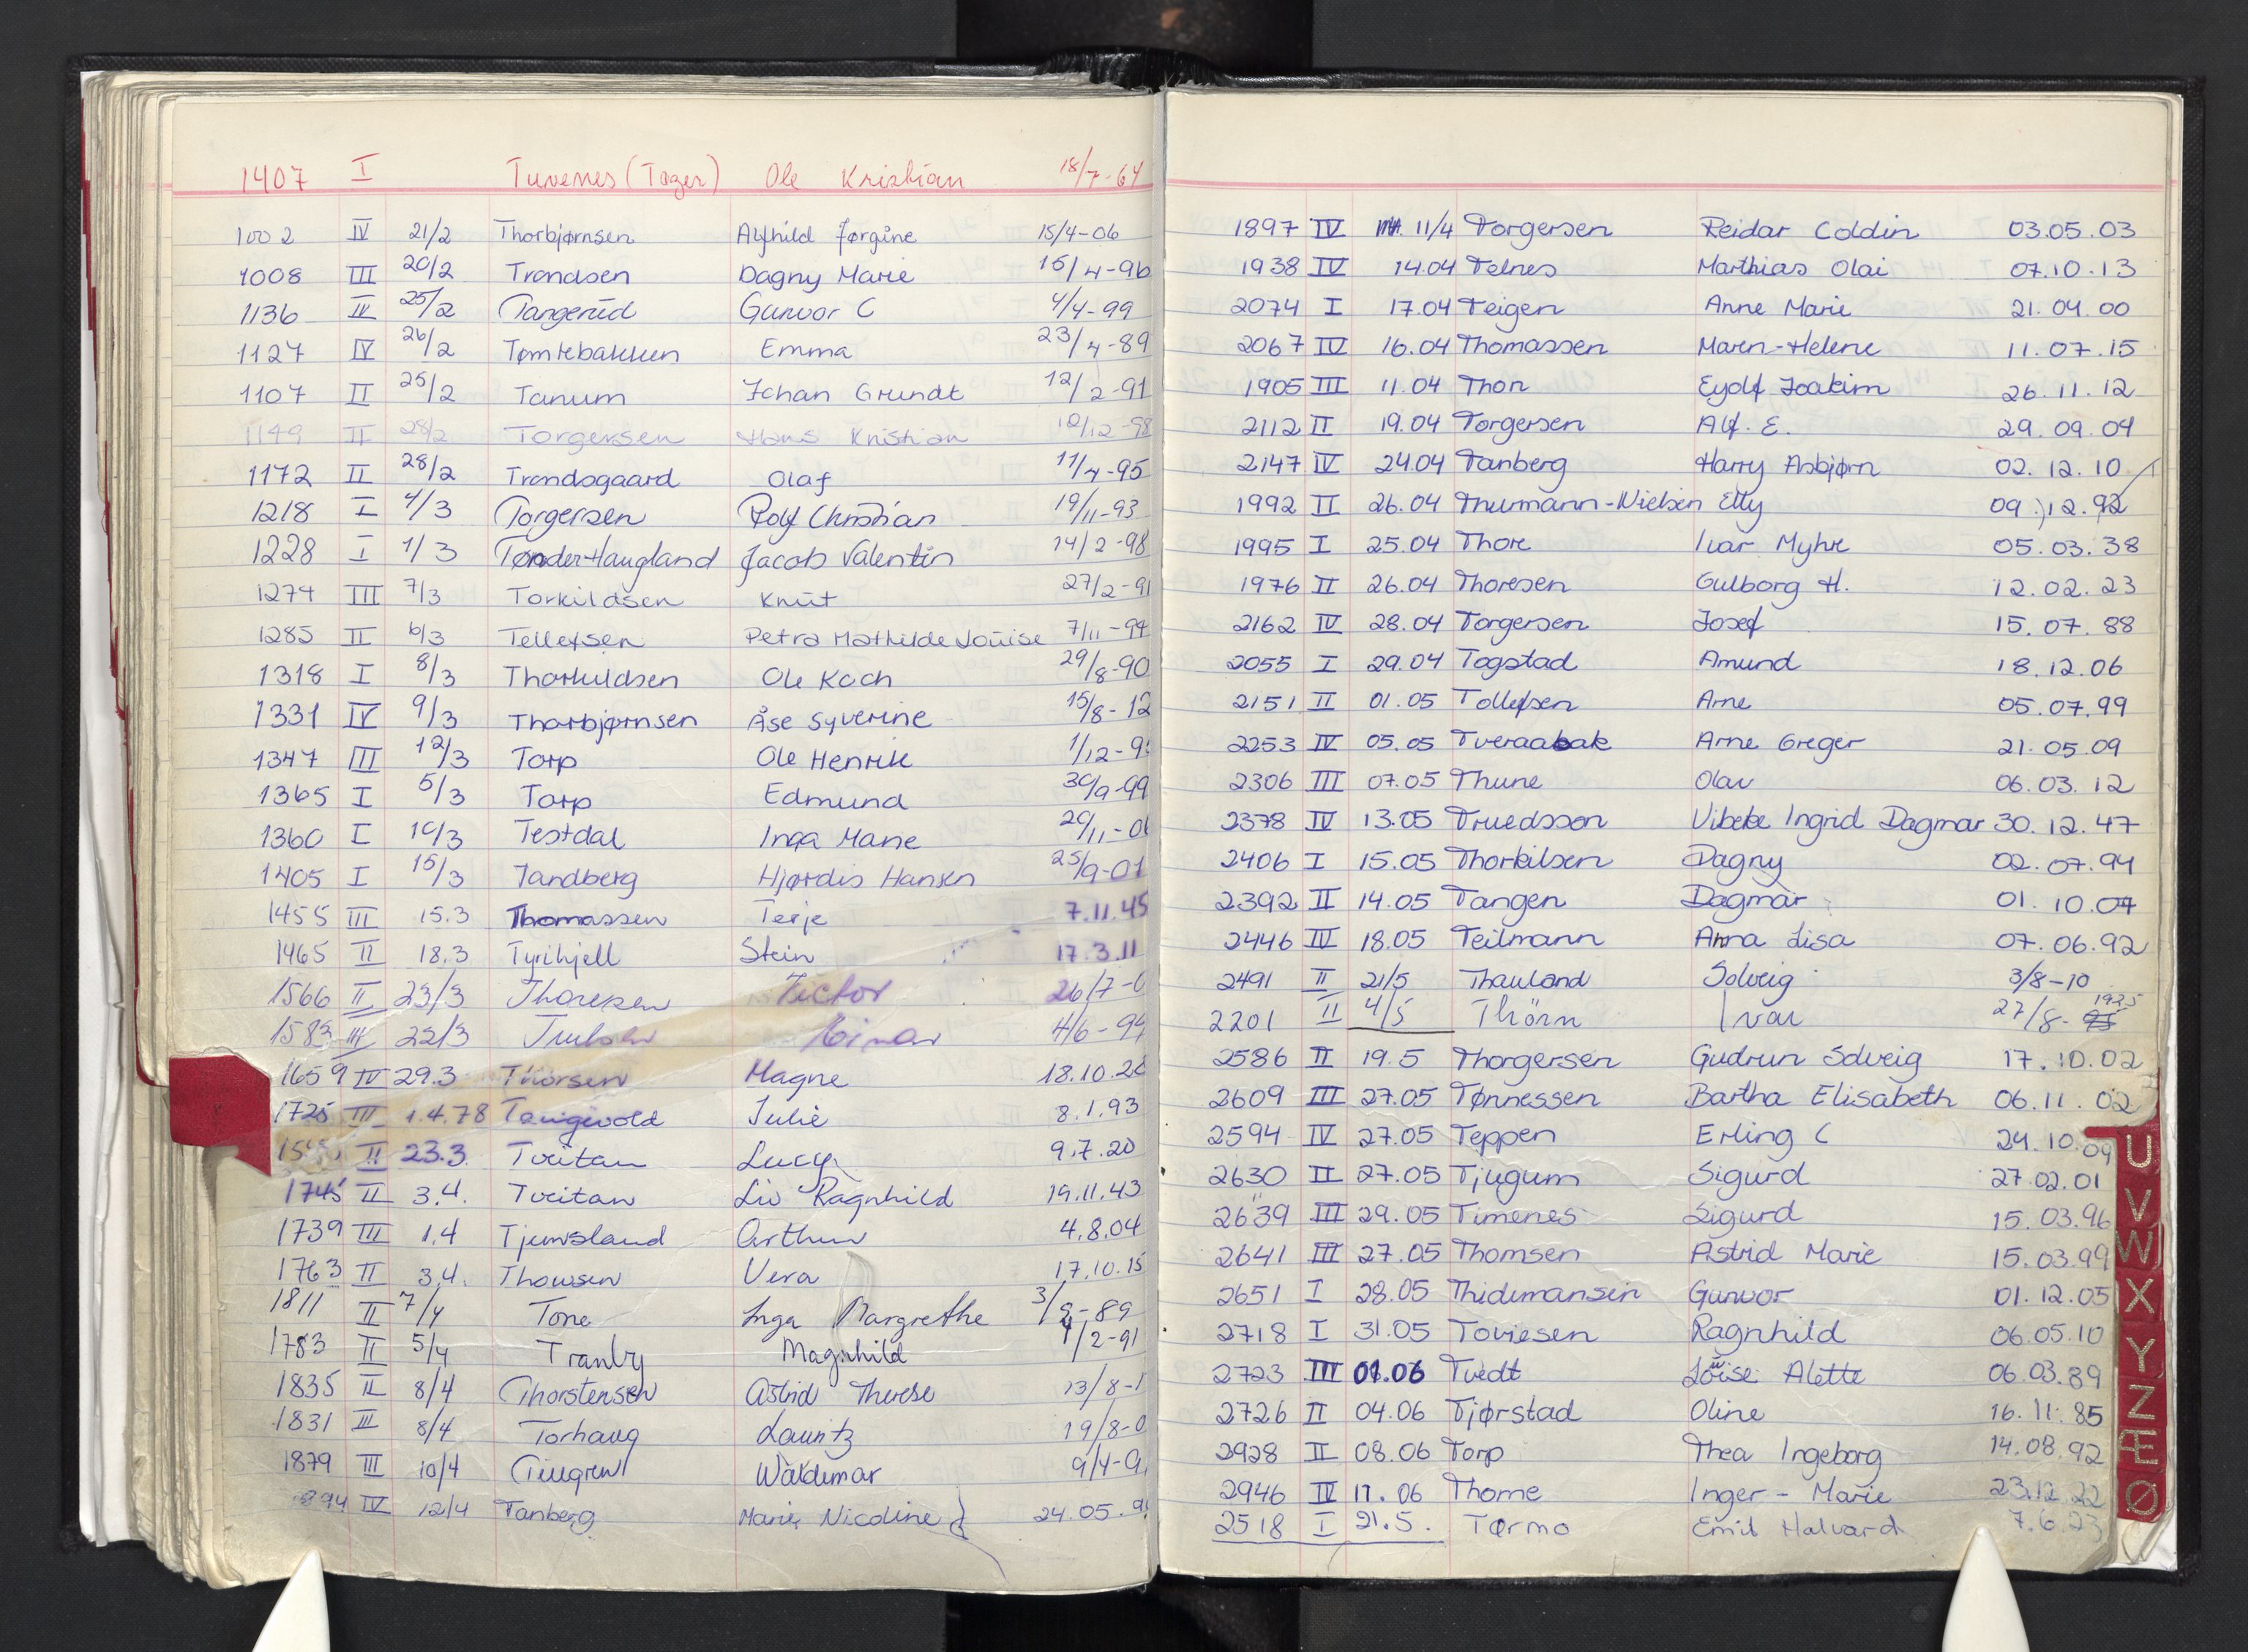 1407 I Tuvenes (Tager) Ole Kristian 18/7-64
1002 IV 21/2 Thorbjørnsen Alfhild Jørgine 15/4-06
1008 III 20/2 Trondsen Dagny Marie 15/4-96
1136 II 25/2 Tangerud Gunvor C 4/4-99
1127 IV 26/2 Tømtebakken Emma 23/4-89
1107 II 25/2 Tanum Johan Grundt 12/2-91
1149 II 28/2 Torgersen Hans Kristian 12/12-98
1172 II 28/2 Trondsgaard Olaf 11/4-95
1218 I 4/3 Torgersen Rolf Christian 19/11-93
1228 I 1/3 Tønder-Haugland Jacob Valentin 14/2-98
1274 III 7/3 Torkildsen Knut 27/2-91
1285 II 6/3 Tellefsen Petra Mathilde Louise 7/11-94
1318 I 8/3 Thorkildsen Ole Koch 29/8-90
1331 IV 9/3 Thorbjørnsen Åse Syverine 15/8-12
1347 III 12/3 Torp Ole Henrik 1/12-9
1365 I 5/3 Torp Edmund 30/9-99
1360 I 10/3 Testdal Inga Marie 20/11-0
1405 I 15/3 Tandberg Hjørdis Hansen 25/9-01
1455 III 15.3 Thomassen Terje 7.11.45
1465 II 18.3 Tyrihjell Stein 17.3.11
1566 II 23/3 Thoresen Victor 26/7-0
1583 III 22/3 4/6-94
1659 IV 29.3 Thorsen Magne 18.10.2
1725 III 1.4.78 Tangevold Julie 8.1.93
II 23.3 Tveitan Lucy 9.7.20
1745 II 3.4. Tveitan Liv Ragnhild 19.11.43
1739 III 1.4 Tjomsland Arthur 4.8.04
1763 II 3.4. Thowsen Vera 17.10.15
1811 II 7/4 Tone Inga Margrethe 3/9-89
1783 II 5/4 Tranby Magnhild 1/2-91
1835 II 8/4 Thorstensen Astrid Therese 13/8-1
1831 III 8/4 Torhaug Lauritz 19/8-0
1879 III 10/4 Waldemar 9/4-9
894 IV 12/4 Tanberg Marie Nicoline 24.05.9
1897 IV 11/4 Torgersen Reidar Coldin 03.05.03
1938 IV 14.04 Telnes Marthias Olai 07.10.13
2074 I 17.04 Teigen Anne Marie 21.04.00
2067 IV 16.04 Thomassen Maren-Helene 11.07.15
1905 III 11.04 Thon Eyolf Joakim 26.11.12
2112 II 19.04 Torgersen Alf. E. 29.09.04
2147 IV 24.04 Tanberg Harry Asbjørn 02.12.10
1992 II 26.04 Thurmann-Nielsen Elly 09.12.92
1995 I 25.04 Thore Ivar Myhre 05.03.38
1976 II 26.04 Thoresen Gulborg H. 12.02.23
2162 IV 28.04 Torgersen Josef 15.07.88
2055 I 29.04 Togstad Amund 18.12.06
2151 II 01.05 Tollefsen Arne 05.07.99
2253 IV 05.05 Tveraabak Arne Greger 21.05.09
2306 III 07.05 Thune Olav 06.03.12
2378 IV 13.05 Truedsson Vibeke Ingrid Dagmar 30.12.47
2406 I 15.05 Thorkilsen Dagny 02.07.94
2392 II 14.05 Tangen Dagmar 01.10.07
2446 IV 18.05 Teilmann Anna Lisa 07.06.92
2491 II 21/5 Thauland Solveig 3/8-10
2201 II 4/5 Thörn Ivar 27/8- 1925
2586 II 19.5 Thorgersen Gudrun Solveig 17.10.02
2609 III 27.05 Tønnessen Bartha Elisabeth 06.11.02
2594 IV 27.05 Teppen Erling C 24.10.09
2630 II 27.05 Tjugum Sigurd 27.02.01
2639 III 29.05 Timenes Sigurd 15.03.96
2641 III 27.05 Thomsen Astrid Marie 15.03.99
2651 I 28.05 Thidemansen Gunvor 01.12.05
2718 I 31.05 Toviesen Ragnhild 06.05.10
2723 III 01.06 Tvedt Louise Alette 06.03.89
2726 II 04.06 Tjørstad Oline 16.11.85
2928 II 08.06 Torp Thea Ingeborg 14.08.92
2946 IV 17.06 Thome Inger-Marie 23.12.22
2518 I 21.5. Tørmo Emil Halvard 7.6.23
U
V
W
X
Y
Z
Æ
Ø